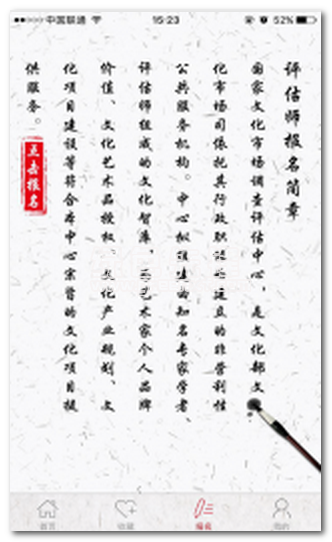 中国联通 15:23 52%
评估师报名简章
国家文化市场调查评估中心，是文化部文
化市场司依托其行政职能建立的非营利性
公共服务机构。中心拟组建由知名专家学者、
评估师组成的文化智库，为艺术家个人品牌
价值、文化艺术品授权、文化产业规划、文
化项目建设等符合本中心宗旨的文化项目提
供服务。
点击报名
首页 收藏 报名 我的